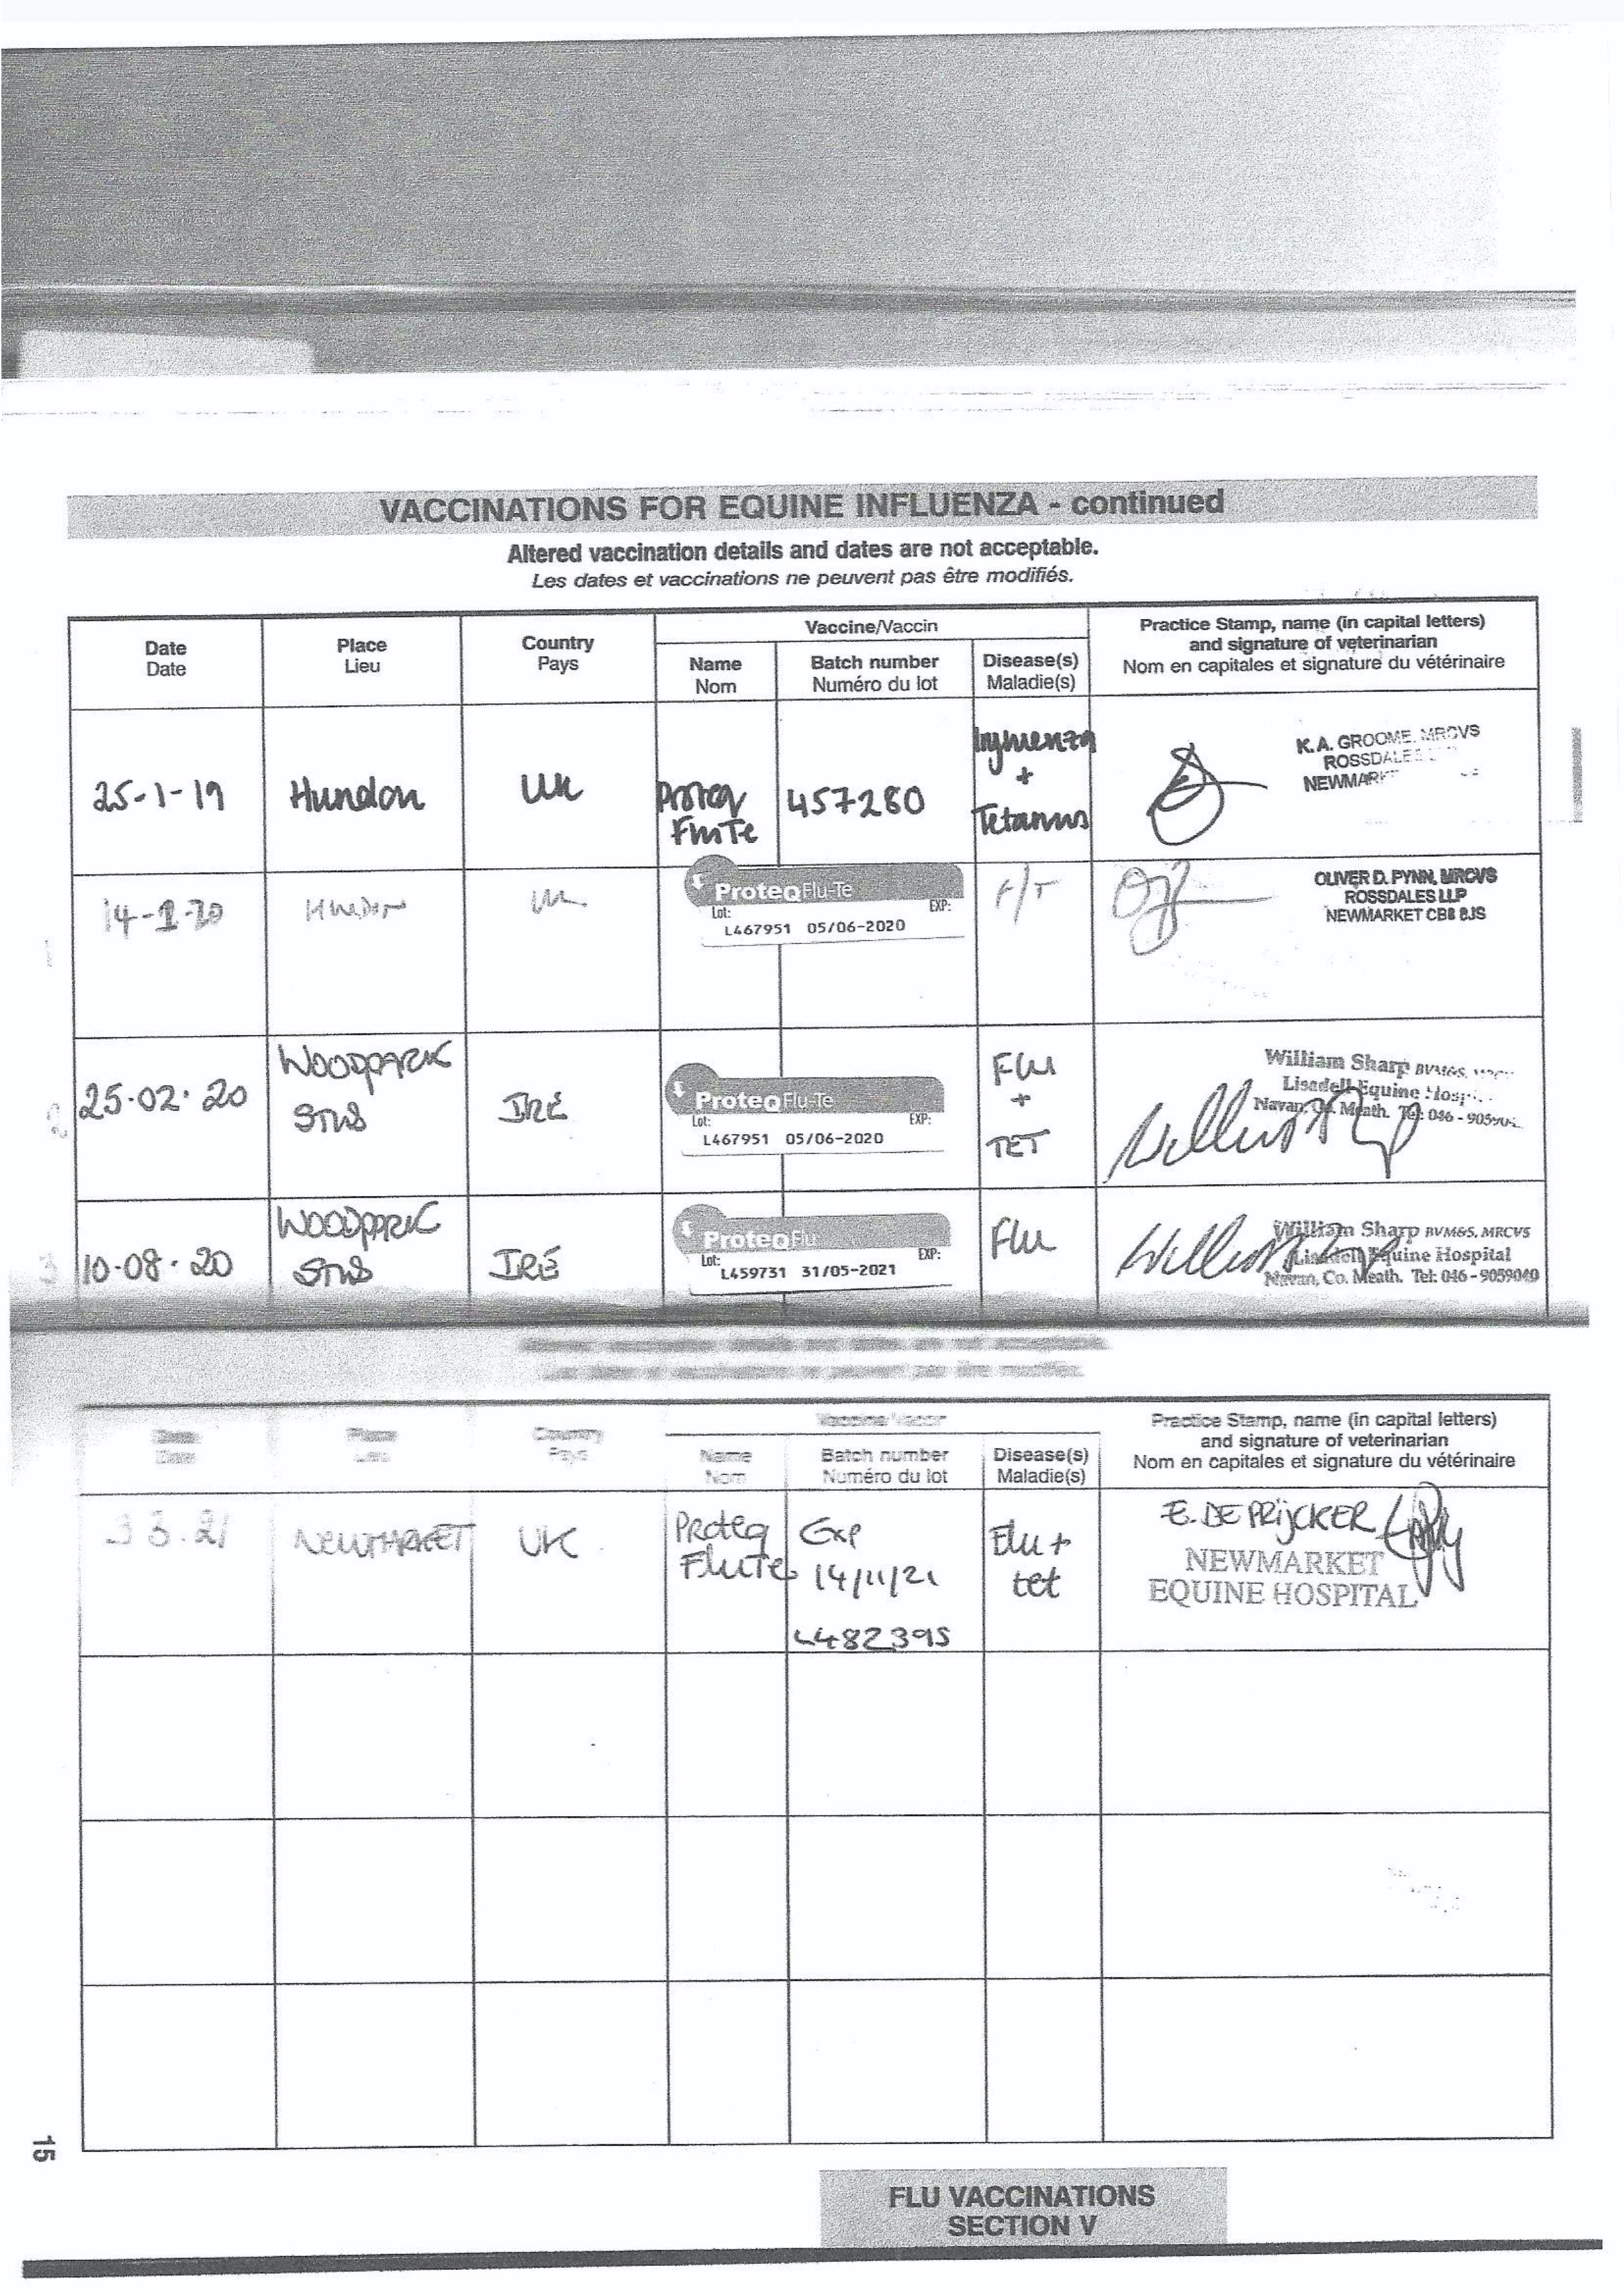 VACCINATIONS FOR EQUINE INFLUENZA - continued
Altered vaccination details and dates are not acceptable.
Les dates et vaccinations ne peuvent pas être modifiés.
Date
Date
Place
Lieu
Country
Pays
Vaccine/Vaccin
Name
Nom
Batch number
Numéro du lot
Disease(s)
Maladie(s)
Practice Stamp, name (in capital letters)
and signature of veterinarian
Nom en capitales et signature du vétérinaire
25-1-19
Hundon
UK
Proteq
FluTe
457280
Influenza
+
Tetanus
K.A. GROOME, MRCVS
ROSSDALES
NEWMARKET
Hundon
UK
ProteqFlu-Te
Lot:
EXP:
L467951 05/06-2020
F/T
OLIVER D. PYNN, MRCVS
ROSSDALES LLP
NEWMARKET CB8 8JS
1
2
25.02.20
WOODPARK
STUD
IRE
ProteqFlu-Te
Lot:
EXP:
L467951 05/06-2020
Flu
+
TET
William Sharp BVM&S, MRCVS
Lisadell Equine Hosp
Navan, Co. Meath. Tel: 046 - 9059
3
10.08.20
WOODPARK
STUD
IRE
ProteqFlu
Lot:
EXP:
L459731 31/05-2021
Flu
William Sharp BVM&S, MRCVS
Lisadell Equine Hospital
Navan, Co. Meath. Tel: 046 - 9059040
Altered vaccination details and dates are not acceptable.
Les dates et vaccinations ne peuvent pas être modifiés.
Date
Date
Place
Lieu
Country
Pays
Vaccine/Vaccin
Name
Nom
Batch number
Numéro du lot
Disease(s)
Maladie(s)
Practice Stamp, name (in capital letters)
and signature of veterinarian
Nom en capitales et signature du vétérinaire
3 3.21
NEWMARKET
UK
Proteq
FluTe
Exp
14/11/21
L482395
Flu +
tet
E. DE PRIJCKER
NEWMARKET
EQUINE HOSPITAL
15
FLU VACCINATIONS
SECTION V